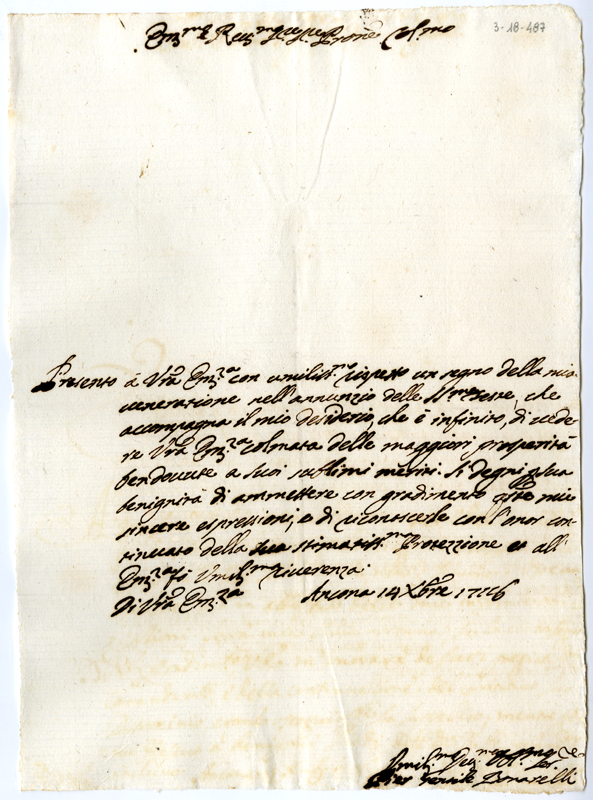 3-18-487
Em.mo e Rev.mo Sig.re Sig.re Prone Col.mo
Presento á Vrã Em.za con umiliss.mo rispetto un segno della mia
venerazione nell'annunzio delle SS.me Feste, che
accompagna il mio desiderio, che è infinito, di vede-
re Vrã Em.za colmata delle maggiori prosperità
ben dovute a suoi sublimi meriti. Si degni p sua
benignità di ammettere con gradimento qste mie
sincere espressioni, e di riconoscerle con l'onor con-
tinuato della sua stimatiss.ma Protezione et all'
Em.za fò Umiliss.ma riverenza.
Di Vrã Em.za Ancona 14 Xbre 1726
Umil.mo Dev.mo Obl.
Pier Bonarelli